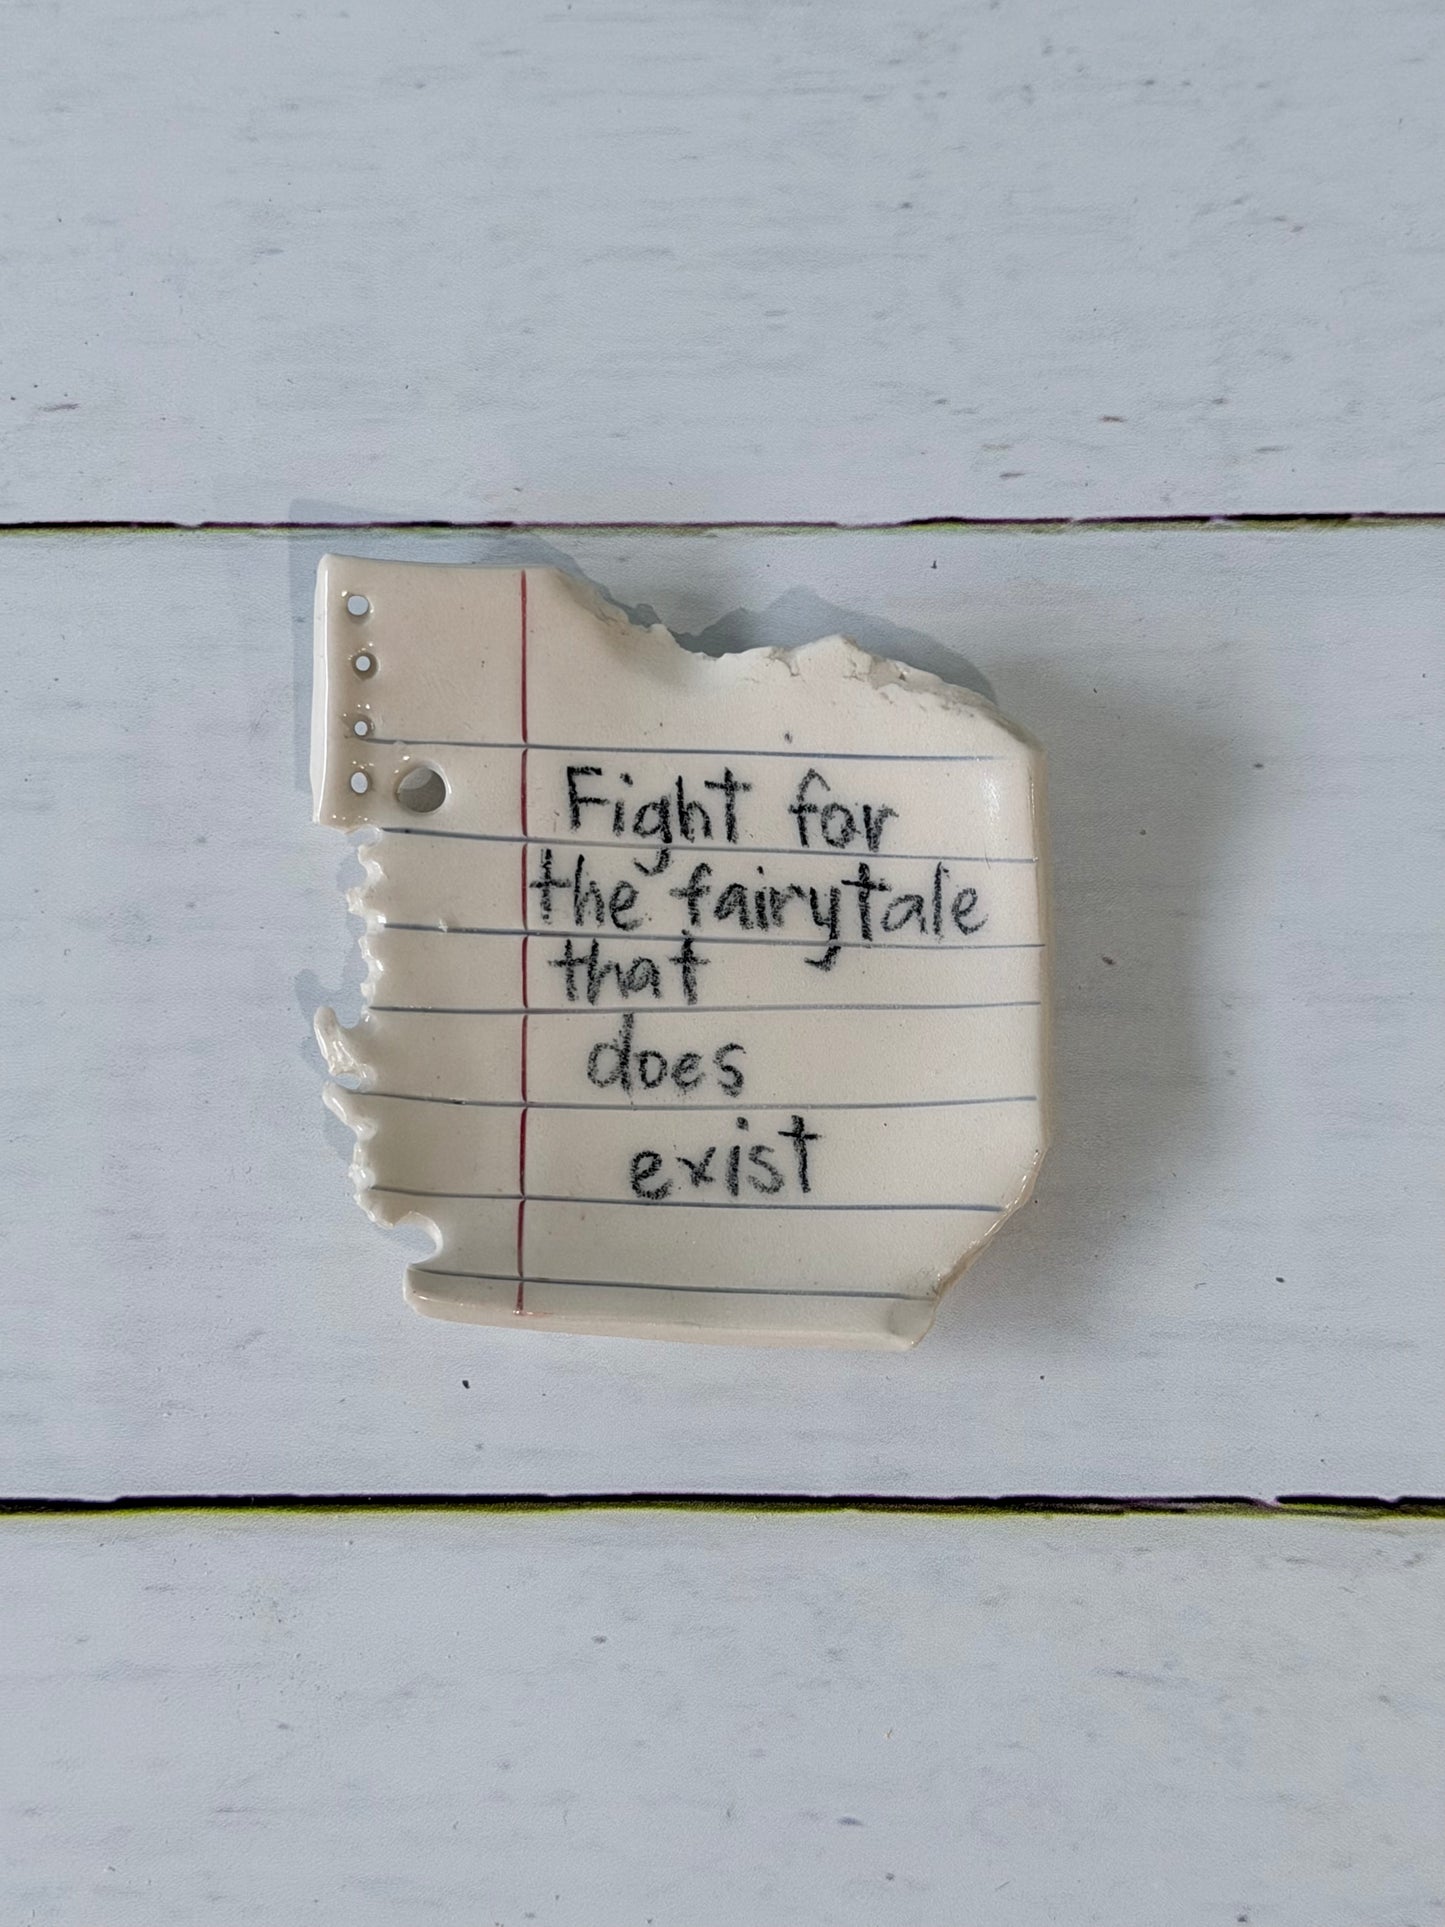 Fight for
the fairytale
that
does
exist